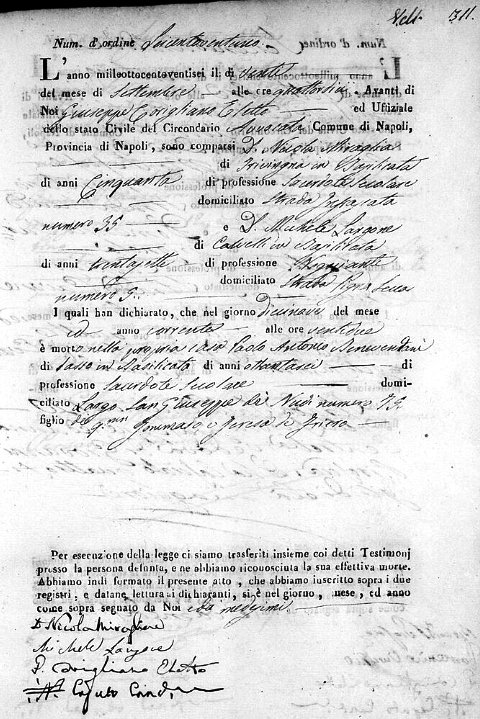 311.
Num. d'ordine Ducentoventuno.
L'anno milleottocentoventisei il di venti
del mese di Settembre alle ore quattordici Avanti di
Noi Giuseppe Corigliano Eletto ed Uffiziale
dello stato Civile del Circondario Avvocata Comune di Napoli,
Provincia di Napoli, sono comparsi D. Nicola Miraglia
di in Basilicata
di anni Cinquanta di professione Sacerdote Secolare
domiciliato Strada
numero 35 e D. Michele Langone
di Calvelli in Basilicata
di anni trentasette di professione
domiciliato Strada
numero 9.
I quali han dichiarato, che nel giorno diecinove del mese
ed anno corrente alle ore ventidue
è morto nella propria casa Paolo Antonio Beneventani
di Sasso in Basilicata di anni ottantasei di
professione Sacerdote Secolare domi-
ciliato Largo San Giuseppe de Nudi numero 73.
figlio dei Tommaso e Teresa
Per esecuzione della legge ci siamo trasferiti insieme coi detti Testimonj
presso la persona defunta, e ne abbiamo riconosciuta la sua effettiva morte.
Abbiamo indi formato il presente atto, che abbiamo inscritto sopra i due
registri, e datane lettura ai dichiaranti, si è nel giorno, mese, ed anno
come sopra segnato da Noi e da medesimi.
D. Nicola Miraglia
Michele Langone
Corigliano Eletto
Caputo